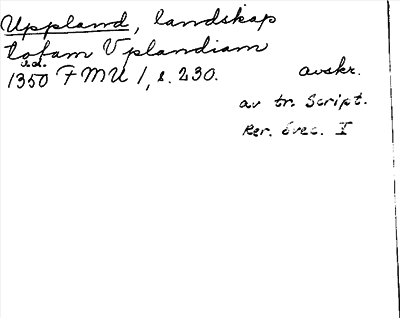 Uppland, landskap
totam Vplandiam
1350 FMU 1, s. 230. avskr.
av tr. Script.
Rer. Svec. I